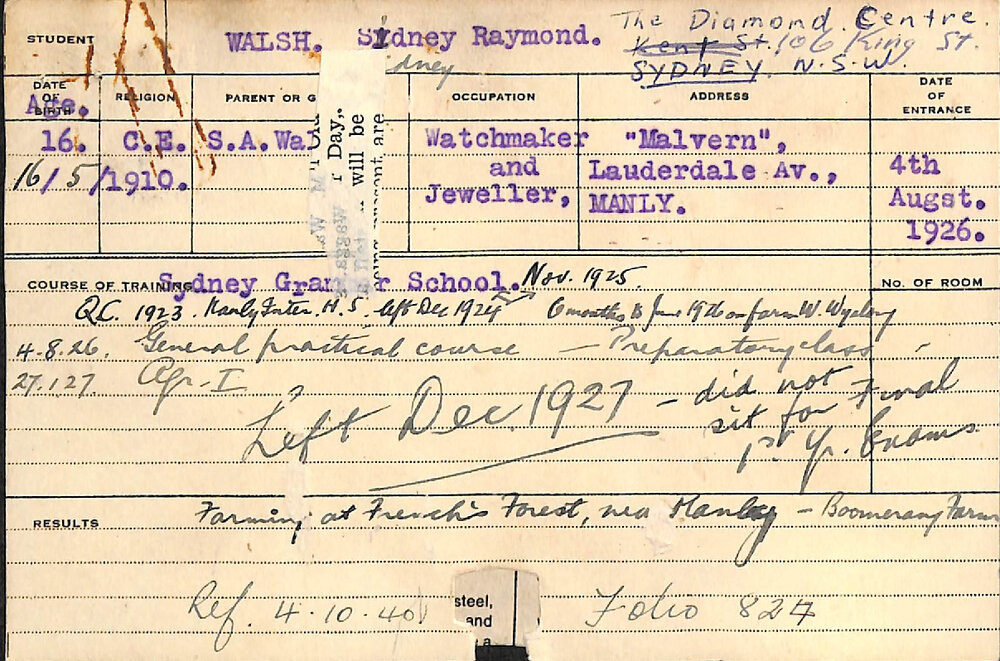 STUDENT WALSH. Sidney Raymond. The Diamond Centre.
dney Kent St. 106 King St.
SYDNEY. N.S.W.
DATE OF BIRTH RELIGION PARENT OR G OCCUPATION ADDRESS DATE OF ENTRANCE
Age.
16. C.E. S.A.Wa Watchmaker "Malvern",
16/5/1910. and Lauderdale Av., 4th
Jeweller, MANLY. Augst.
1926.
Day,.
will be
are
COURSE OF TRAINING Sydney Grammar School. Nov. 1925. No. OF ROOM
Q.C. 1923. Manly Inter. H.S. left Dec 1924 6 months to June 1926 on farm W. Wyalong
4.8.26. General practical course — Preparatory class
27.1.27. Agr. I
Left Dec. 1927 – did not sit for Final
1st Yr. Exams.
RESULTS Farming at French's Forest, near Manly – Boomerang Farm
Ref. 4.10.40 Folio 827
steel,
and
a